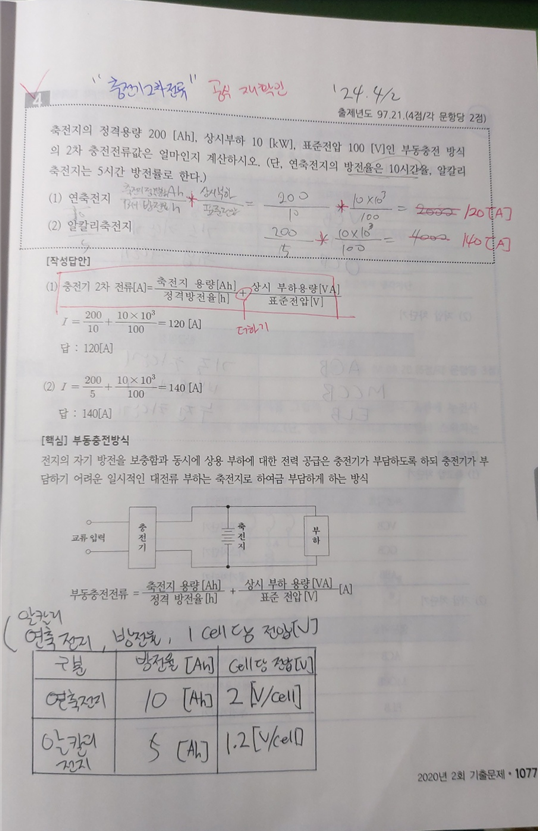 "충전기 2차 전류" 공식 재확인 '24. 4/2
4
출제년도 97.21.(4점/각 문항당 2점)
축전지의 정격용량 200 [Ah], 상시부하 10 [kW], 표준전압 100 [V]인 부동충전 방식
의 2차 충전전류값은 얼마인지 계산하시오. (단, 연축전지의 방전율은 10시간율, 알칼리
축전지는 5시간 방전률로 한다.)
(1) 연축전지 200/10 * 10×10³/100 = 2000 120[A]
(2) 알칼리축전지 200/5 * 10×10³/100 = 4000 140[A]
5
[작성답안]
(1) 충전기 2차 전류[A]=축전지 용량[Ah]/정격방전율[h]+상시 부하용량[VA]/표준전압[V]
더하기
I = 200/10 + 10×10³/100 = 120 [A]
답 : 120[A]
(2) I = 200/5 + 10×10³/100 = 140 [A]
답 : 140[A]
[핵심] 부동충전방식
전지의 자기 방전을 보충함과 동시에 상용 부하에 대한 전력 공급은 충전기가 부담하도록 하되 충전기가 부
담하기 어려운 일시적인 대전류 부하는 축전지로 하여금 부담하게 하는 방식
교류입력
충전기
축전지
부하
부동충전전류 = 축전지 용량[Ah]/정격 방전율[h] + 상시 부하 용량[VA]/표준 전압[V] [A]
알칼리
( 연축전지, 방전율, 1 cell당 전압[V]
구분 방전율 [Ah] Cell당 전압[V]
연축전지 10 [Ah] 2 [V/cell]
알칼리 전지 5 [Ah] 1.2 [V/cell]
2020년 2회 기출문제 • 1077